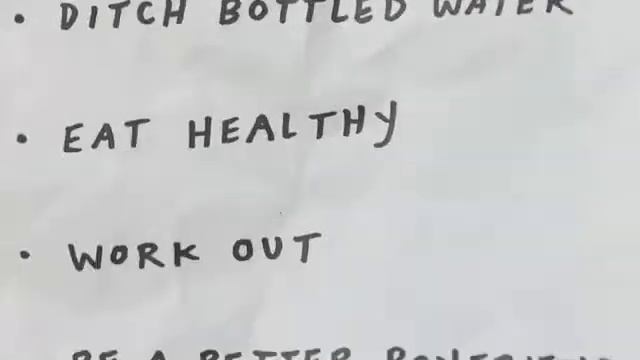 • DITCH BOTTLED WATER
• EAT HEALTHY
• WORK OUT
BE A BETTER